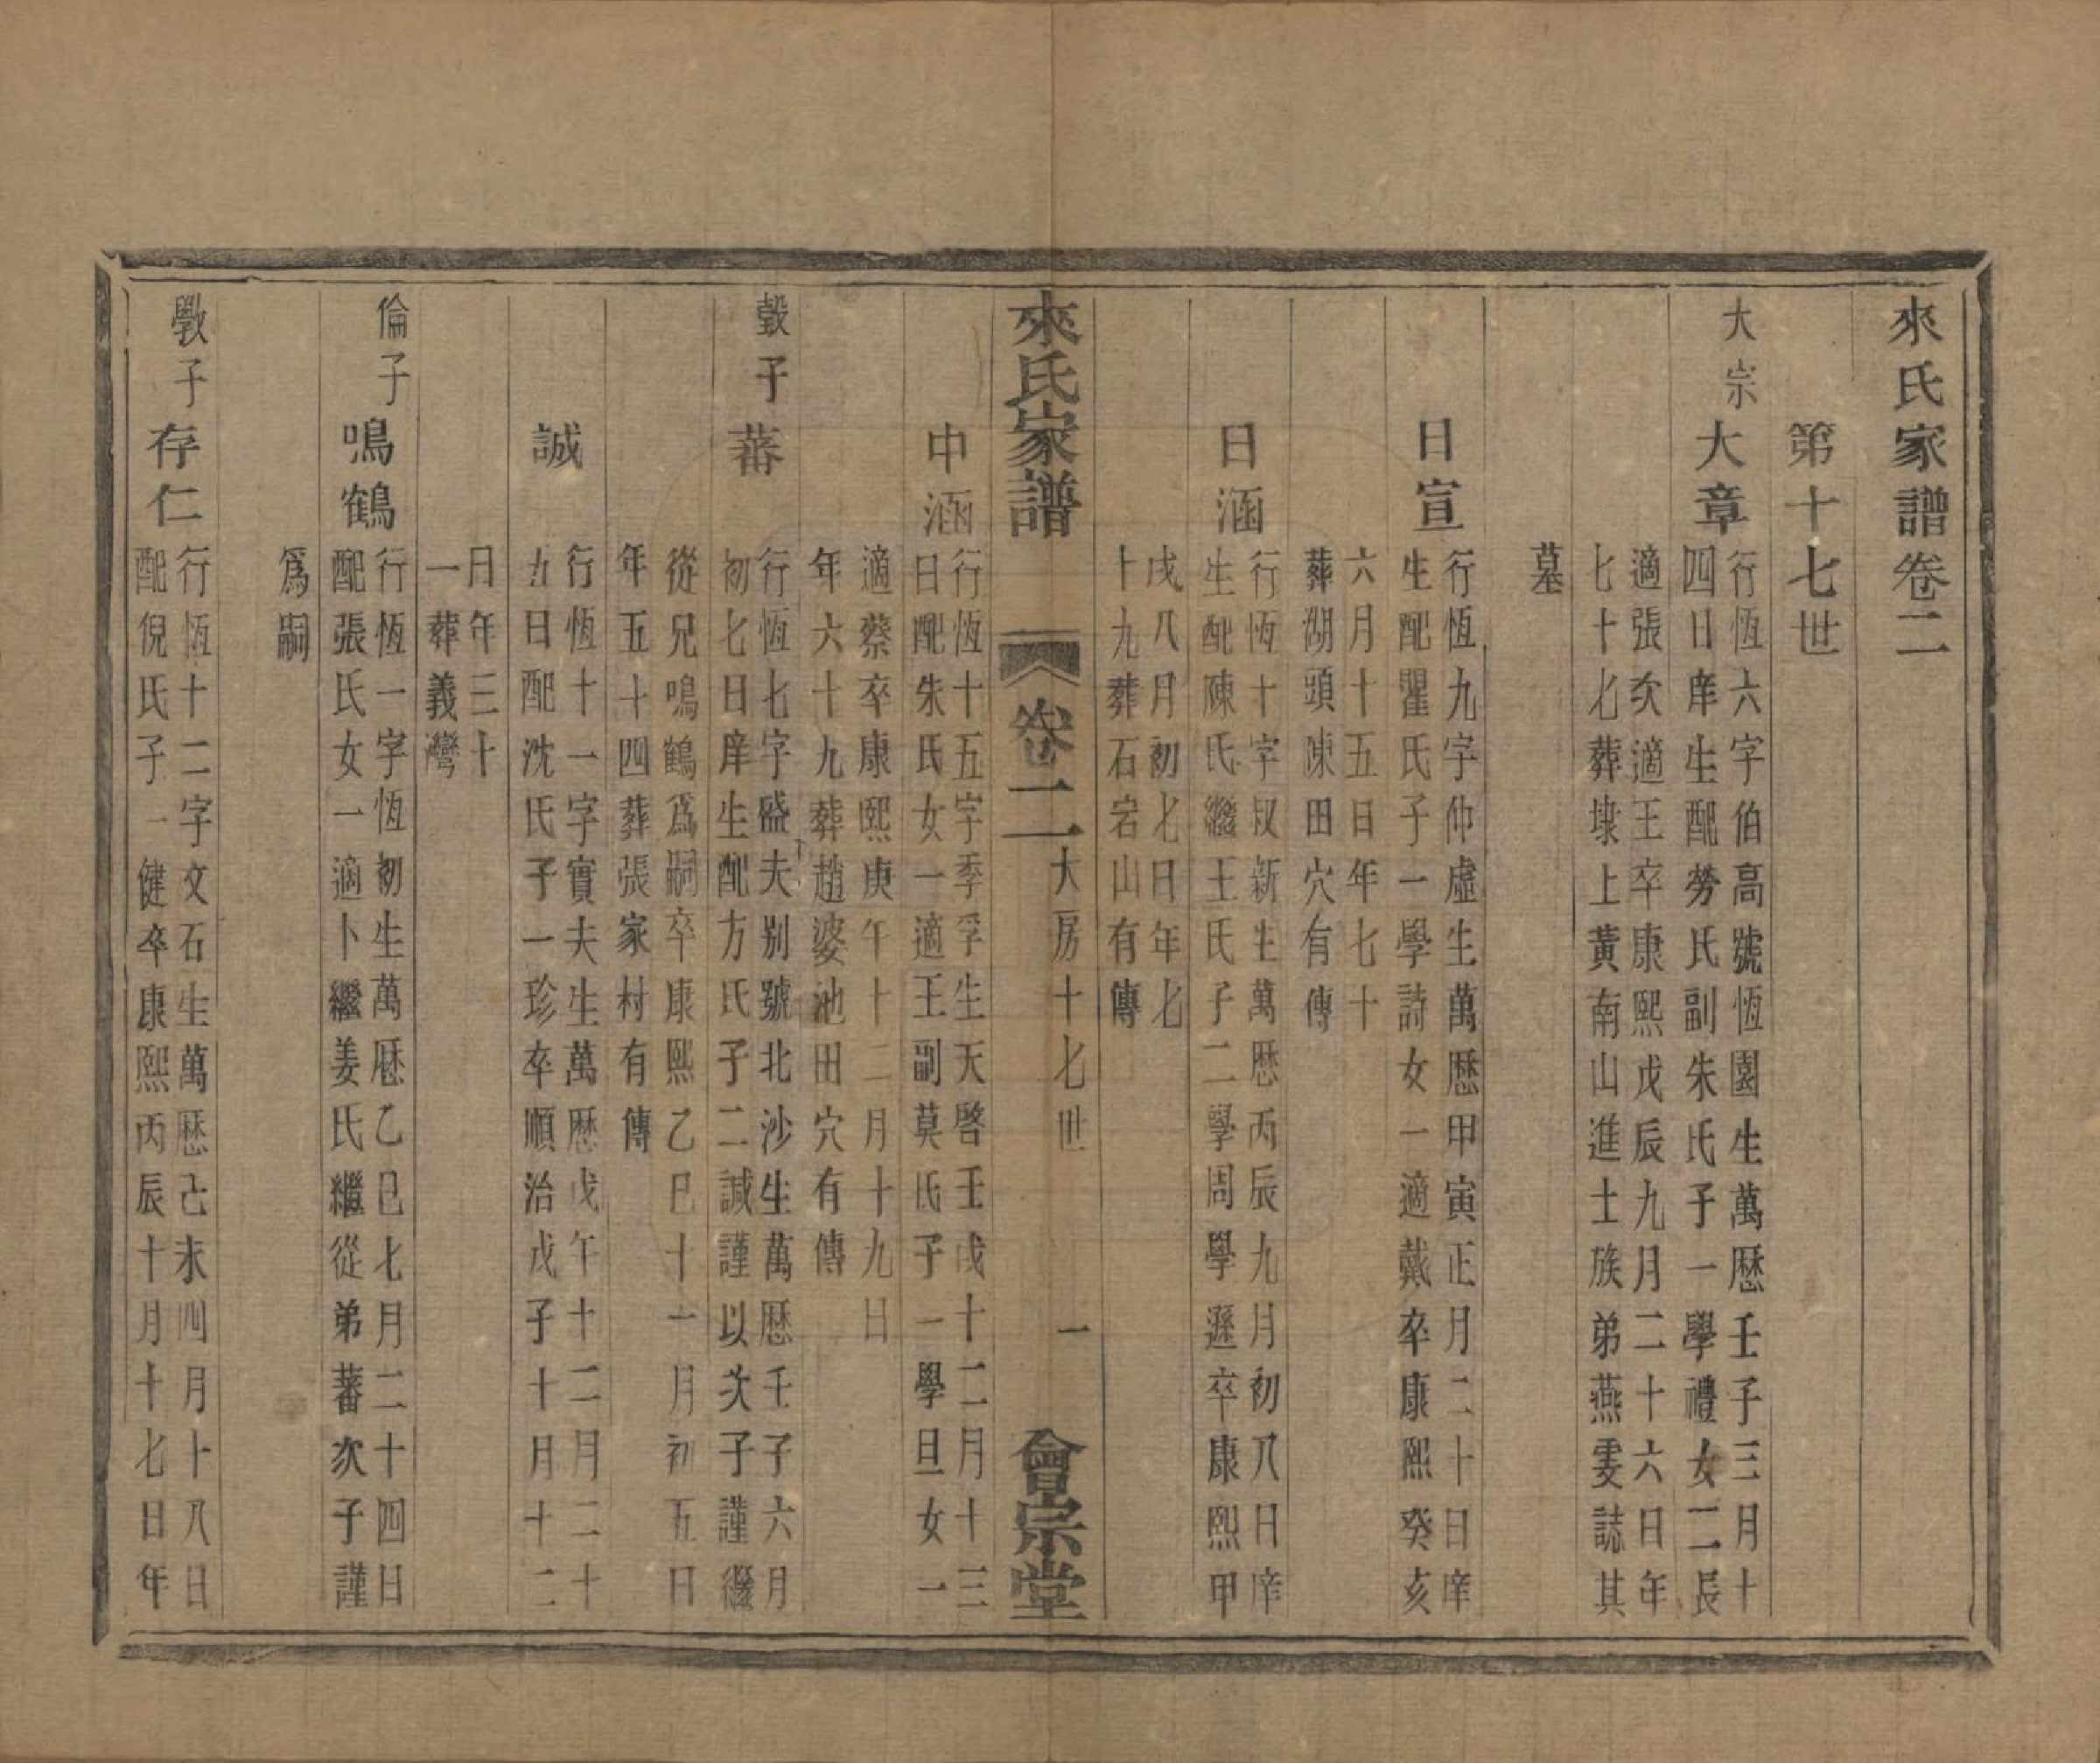 來氏家譜卷二
第十七世
大宗
大章
行恆六字伯高號恆園生萬厯壬子三月十
四日庠生配勞氏副朱氏子一學禮女二長
適張次適王卒康熙戊辰九月二十六日年
七十七葬埭上黃南山進士族弟燕雯誌其
墓
日宣
行恆九字仲虛生萬厯甲寅正月二十日庠
生配瞿氏子一學詩女一適戴卒康熙癸亥
六月十五日年七十
葬湖頭陳田穴有傳
日涵
行恆十字叔新生萬厯丙辰九月初八日庠
生配陳氏繼王氏子二學周學遜卒康熙甲
戌八月初七日年七
十九葬石岩山有傳
來氏家譜
卷二
大房十七世
一
會宗堂
中涵
行恆十五字季孚生天啓壬戌十二月十三
日配朱氏女一適王副莫氏子一學旦女一
適蔡卒康熙庚午十二月十九日
年六十九葬趙婆池田穴有傳
瑴子
蕃
行恆七字盛夫别號北沙生萬厯壬子六月
初七日庠生配方氏子二諴謹以次子謹繼
從兄鳴鶴爲嗣卒康熙乙巳十一月初五日
年五十四葬張家村有傳
誠
行恆十一字實夫生萬厯戊午十二月二十
九日配沈氏子一珍卒順治戊子十月十二
日年三十
一葬義灣
倫子
鳴鶴
行恆一字恆初生萬厯乙巳七月二十四日
配張氏女一適卜繼姜氏繼從弟蕃次子謹
爲嗣
斆子
存仁
行恆十二字文石生萬厯己未四月十八日
配倪氏子一健卒康熙丙辰十月十七日年